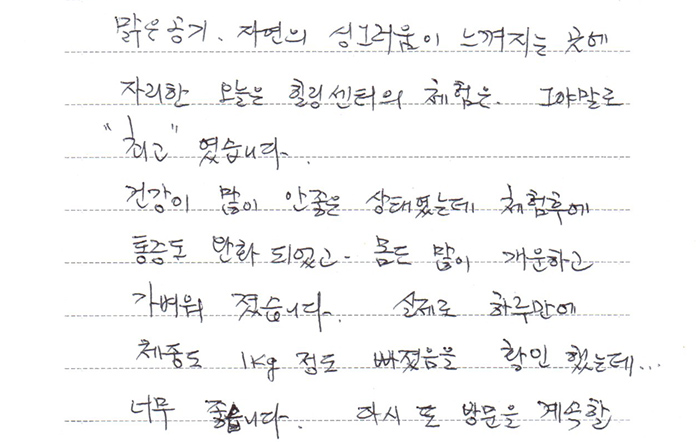 맑은공기, 자연의 싱그러움이 느껴지는 곳에
자리한 오늘은 힐링센터의 체험은. 그야말로
"최고" 였습니다.
건강이 많이 안좋은 상태였는데 체험후에
통증도 완화 되었고. 몸도 많이 개운하고
가벼워 졌습니다. 실제로 하루만에
체중도 1kg 정도 빠졌음을 확인 했는데...
너무 좋습니다. 다시 또 방문을 계속할